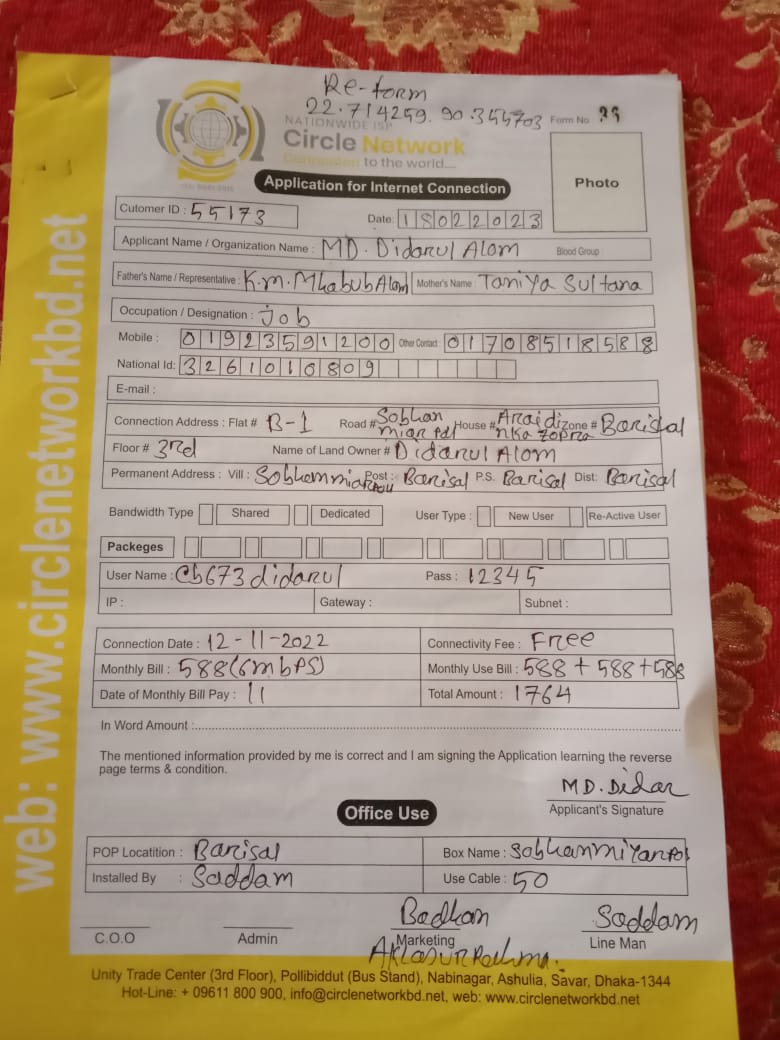 Re-form
22.714259. 90.354703
Form No
NATIONWIDE ISP
Circle Network
Connected to the world....
Photo
Application for Internet Connection
Cutomer ID : 55173
Date: 18022023
Applicant Name / Organization Name : MD. Didarul Alom Blood Group :
Father's Name / Representative : K.m. Mhabub Alom Mother's Name : Taniya Sultana
Occupation / Designation : Job
Mobile : 01923591200 Other Contact : 01708518588
National Id: 3261010809
E-mail :
Connection Address : Flat # B-1 Road # Sobhan mian Pol House # Zone # Barisal
Floor # 3rd Name of Land Owner # Didarul Alom
Permanent Address : Vill : Sobhanmian Post : Barisal P.S. Barisal Dist: Barisal
Bandwidth Type Shared Dedicated User Type : New User Re-Active User
Packeges
User Name : Cb673didarul Pass : 12345
IP : Gateway : Subnet :
Connection Date : 12-11-2022 Connectivity Fee : Free
Monthly Bill : 588(6mbPS) Monthly Use Bill : 588 + 588 + 588
Date of Monthly Bill Pay : 11 Total Amount : 1764
In Word Amount :
The mentioned information provided by me is correct and I am signing the Application learning the reverse
page terms & condition.
MD. Didar
Applicant's Signature
Office Use
POP Locatition : Barisal Box Name : Sobhanmiyanpol
Installed By : Saddam Use Cable : 50
Badhan Saddam
C.O.O Admin Marketing Line Man
Unity Trade Center (3rd Floor), Pollibiddut (Bus Stand), Nabinagar, Ashulia, Savar, Dhaka-1344
Hot-Line: + 09611 800 900, info@circlenetworkbd.net, web: www.circlenetworkbd.net
web: www.circlenetworkbd.net